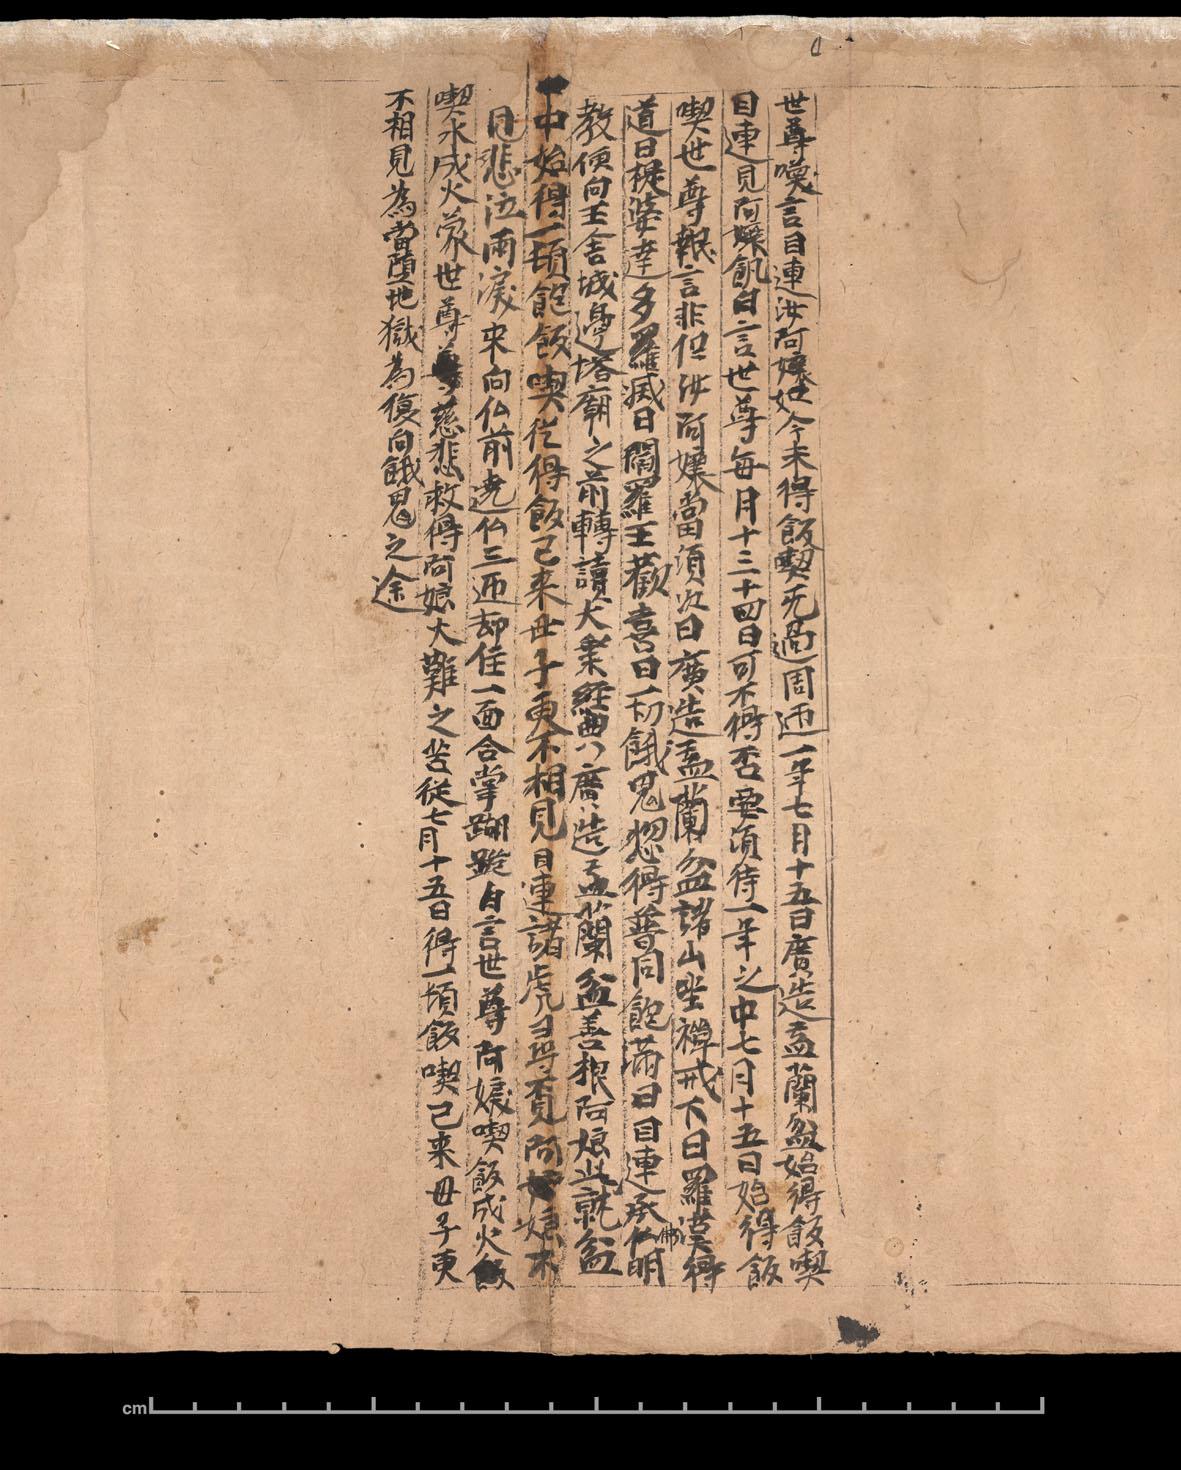 世尊嘆言目連汝阿孃如今未得飯喫无過周迊一年七月十五日廣造盂蘭盆始得飯喫
目連見阿孃飢白言世尊每月十三十四日可不得否要須待一年之中七月十五日始得飯
喫世尊報言非但汝阿孃當須此日廣造盂蘭盆諸山坐禪戒下日羅漢得
道日提婆達多羅滅日閻羅王歡喜日一切餓鬼惣得普同飽滿日目連承佛明
教便向王舍城邊塔廟之前轉讀大乘經典廣造盂蘭盆善根阿娘此就盆
中始得一頓飽飯喫從得飯已來母子更不相見目連諸處尋覓阿娘不
見悲泣兩淚來向仏前遶仏三迊却住一面合掌蹦跪白言世尊阿孃喫飯成火
喫水成火蒙世尊慈悲救得阿娘火難之苦從七月十五日得一頓飯喫已來母子更
不相見為當墮地獄為復向餓鬼之途